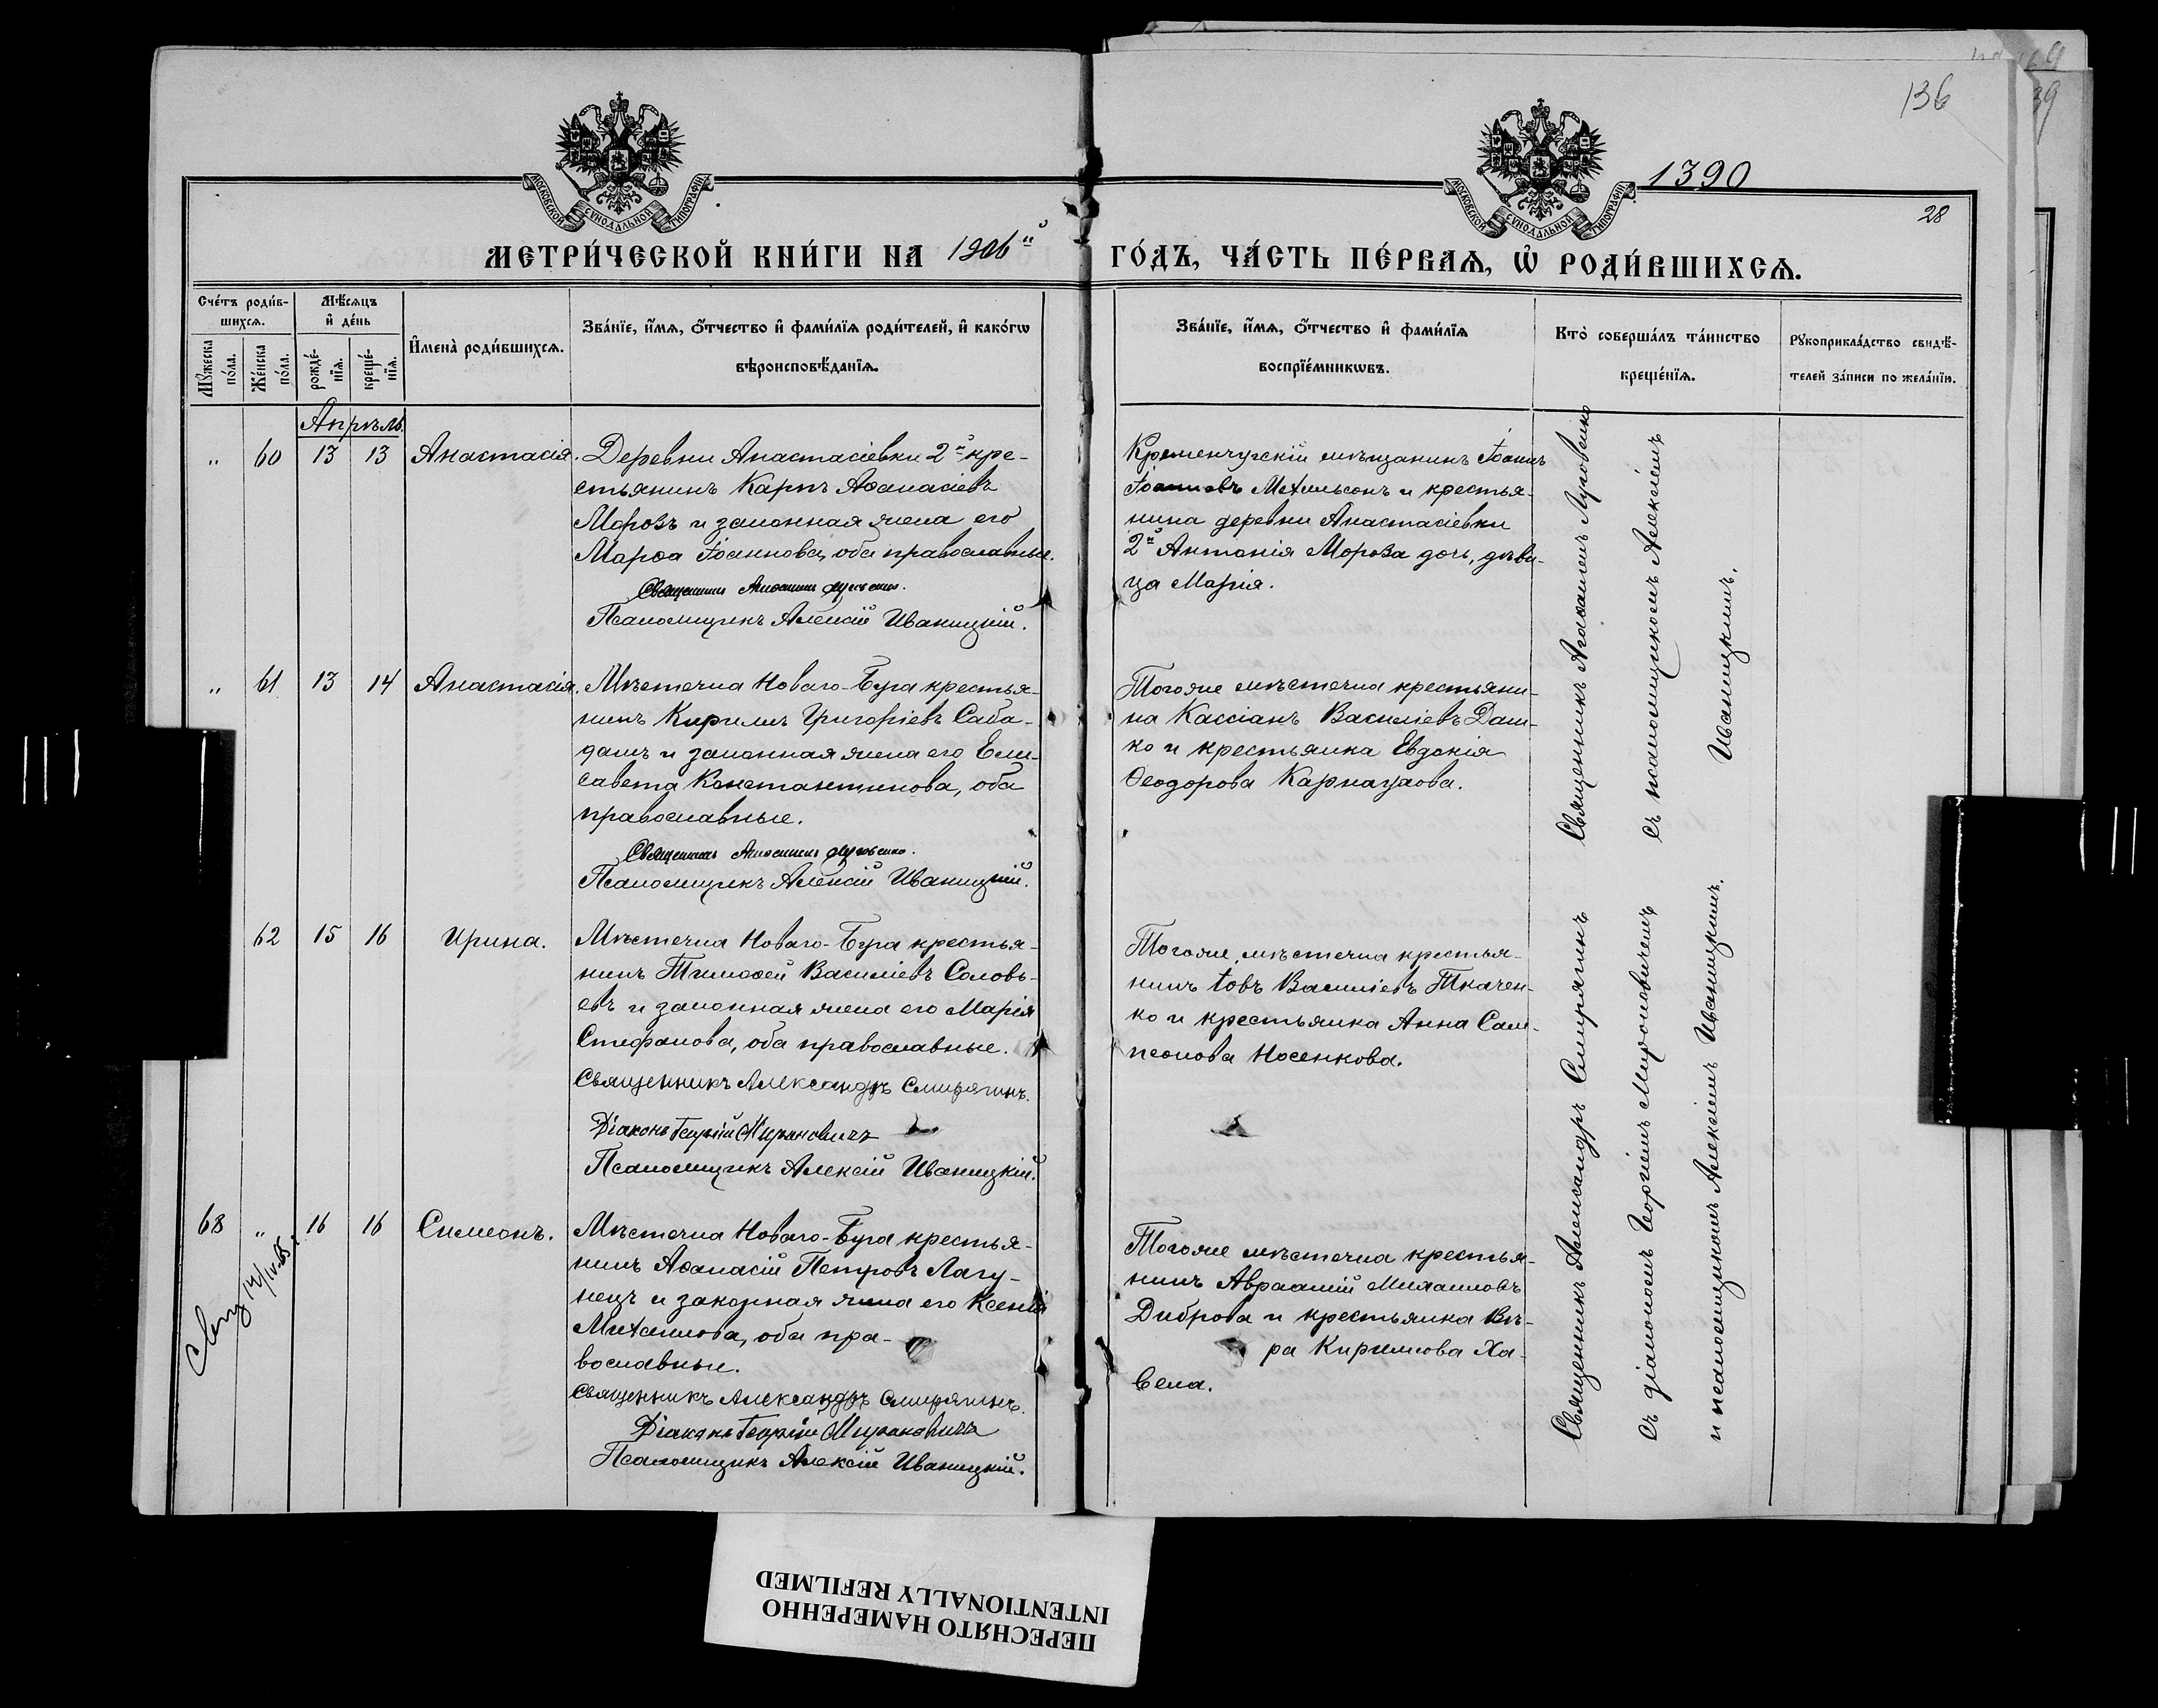 136
39
МОСКОВСКОЙ СѴНОДАЛЬНОЙ ТИПОГРАФІИ
МОСКОВСКОЙ СѴНОДАЛЬНОЙ ТИПОГРАФІИ
1390
28
МЕТРИ́ЧЕСКОЙ КНИ́ГИ НА 1906й ГО́ДЪ, ЧА́СТЬ ПЕ́РВАѦ, Ѡ҆ РОДИ́ВШИХСѦ.
Сче́тъ роди́в-
шихсѧ.
Мѣ́сѧцъ
и҆ де́нь
Мꙋжеска по́ла.
Же́нска по́ла.
рожде́-
нїѧ.
креще́-
нїѧ.
И҆мена̀ роди́вшихсѧ.
Зва́нїе, и҆́мѧ, ѻ҆́тчество и҆ фами́лїѧ роди́телей, и҆ како́гѡ
вѣроисповѣ́данїѧ.
Зва́нїе, и҆́мѧ, ѻ҆́тчество и҆ фами́лїѧ
воспрїе́мникѡвъ.
Кто̀ соверша́лъ та́инство
креще́нїѧ.
Рꙋкоприкла́дство свидѣ́-
телей за́писи по жела́нїю.
Апрѣль.
„ 60 13 13 Анастасія.
Деревни Анастасіевки 2й кре-
стьянинъ Карпъ Аѳанасіевъ
Морозъ и законная жена его
Марѳа Іоаннова, оба православные.
Священникъ Агаѳоникъ Луговенко.
Псаломщикъ Алексій Иваницкій.
Кременчугскій мѣщанинъ Іоаннъ
Іоанновъ Метельсонъ и крестья-
нина деревни Анастасіевки
2й Антонія Мороза дочь, дѣви-
ца Марія.
Священникъ Агаѳоникъ Луговенко
съ псаломщикомъ Алексіемъ
Иваницкимъ.
„ 61 13 14 Анастасія.
Мѣстечка Новаго-Буга крестья-
нинъ Кириллъ Григоріевъ Саба-
дашъ и законная жена его Ели-
савета Константинова, оба
православные.
Священникъ Агаѳоникъ Луговенко.
Псаломщикъ Алексій Иваницкій.
Тогоже мѣстечка крестьяни-
на Кассіанъ Василіевъ Даш-
ко и крестьянка Евдокія
Ѳеодорова Карнаухова.
62 15 16 Ирина.
Мѣстечка Новаго-Буга крестья-
нинъ Тимоѳей Василіевъ Соловь-
евъ и законная жена его Марія
Стефанова, оба православные.
Священникъ Александръ Смирягинъ.
Діаконъ Георгій Мироновичъ
Псаломщикъ Алексій Иваницкій.
Тогоже мѣстечка крестья-
нинъ Іовъ Василіевъ Ткачен-
ко и крестьянка Анна Сам-
псонова Носенкова.
Священникъ Александръ Смирягинъ
съ діакономъ Георгіемъ Мироновичемъ
и псаломщикомъ Алексіемъ Иваницкимъ.
68 „ 16 16 Симеонъ.
14/IV.65
Мѣстечка Новаго-Буга крестья-
нинъ Аѳанасій Петровъ Лагу-
нецъ и законная жена его Ксенія
Михаилова, оба пра-
вославные.
Священникъ Александръ Смирягинъ.
Діаконъ Георгій Мироновичъ
Псаломщикъ Алексій Иваницкій.
Тогоже мѣстечка крестья-
нинъ Авраамій Михаиловъ
Диброва и крестьянка Вѣ-
ра Кириллова Ха-
вела.
ПЕРЕСНЯТО НАМЕРЕННО
INTENTIONALLY REFILMED